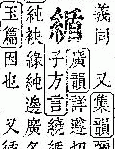 義同 又集韻
廣韻詳遵切
子方言繞
純袂緣純邊廣各
玉篇因也 又